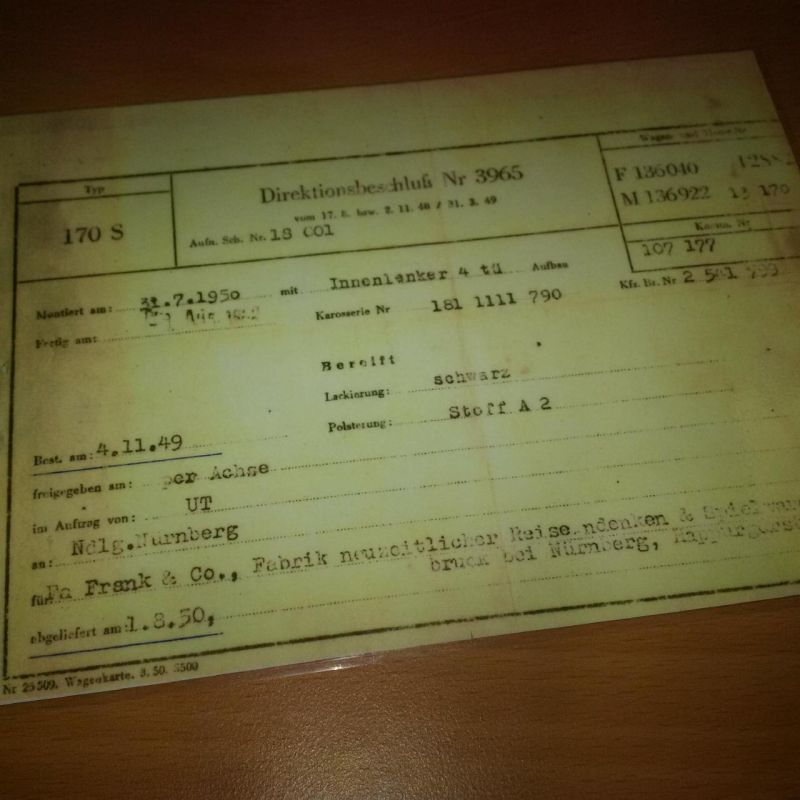 Typ
170 S
Direktionsbeschluß Nr 3965
vom 17. 8. bzw. 2. 11. 48 / 31. 3. 49
Aufn. Sch. Nr. 18 001
Wagen- und Motor-Nr
F 136040
M 136922
Komm. Nr
107 177
Montiert am: 31.7.1950 mit Innenlenker 4 tü Aufbau
Kfz. Br. Nr 2 501
Fertig am:
Karosserie Nr 181 1111 790
Bereift
Lackierung: schwarz
Polsterung: Stoff A 2
Best. am: 4.11.49
freigegeben am: per Achse
im Auftrag von: UT
an: Ndlg.Nürnberg
für Fa Frank & Co., Fabrik neuzeitlicher Reiseandenken &
bruck bei Nürnberg,
abgeliefert am: 1.8.50,
Nr 25 509. Wagenkarte. 3. 50. 3500